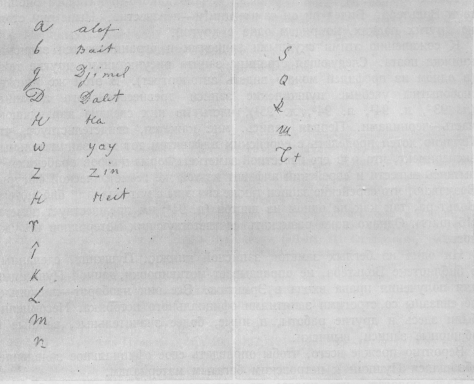 a alof
b Bait
g Djimel
D Dalet
H Ha
w yay
Z Zin
H Heit
T
Î
K
L
m
n
S
Q
R
m
T +